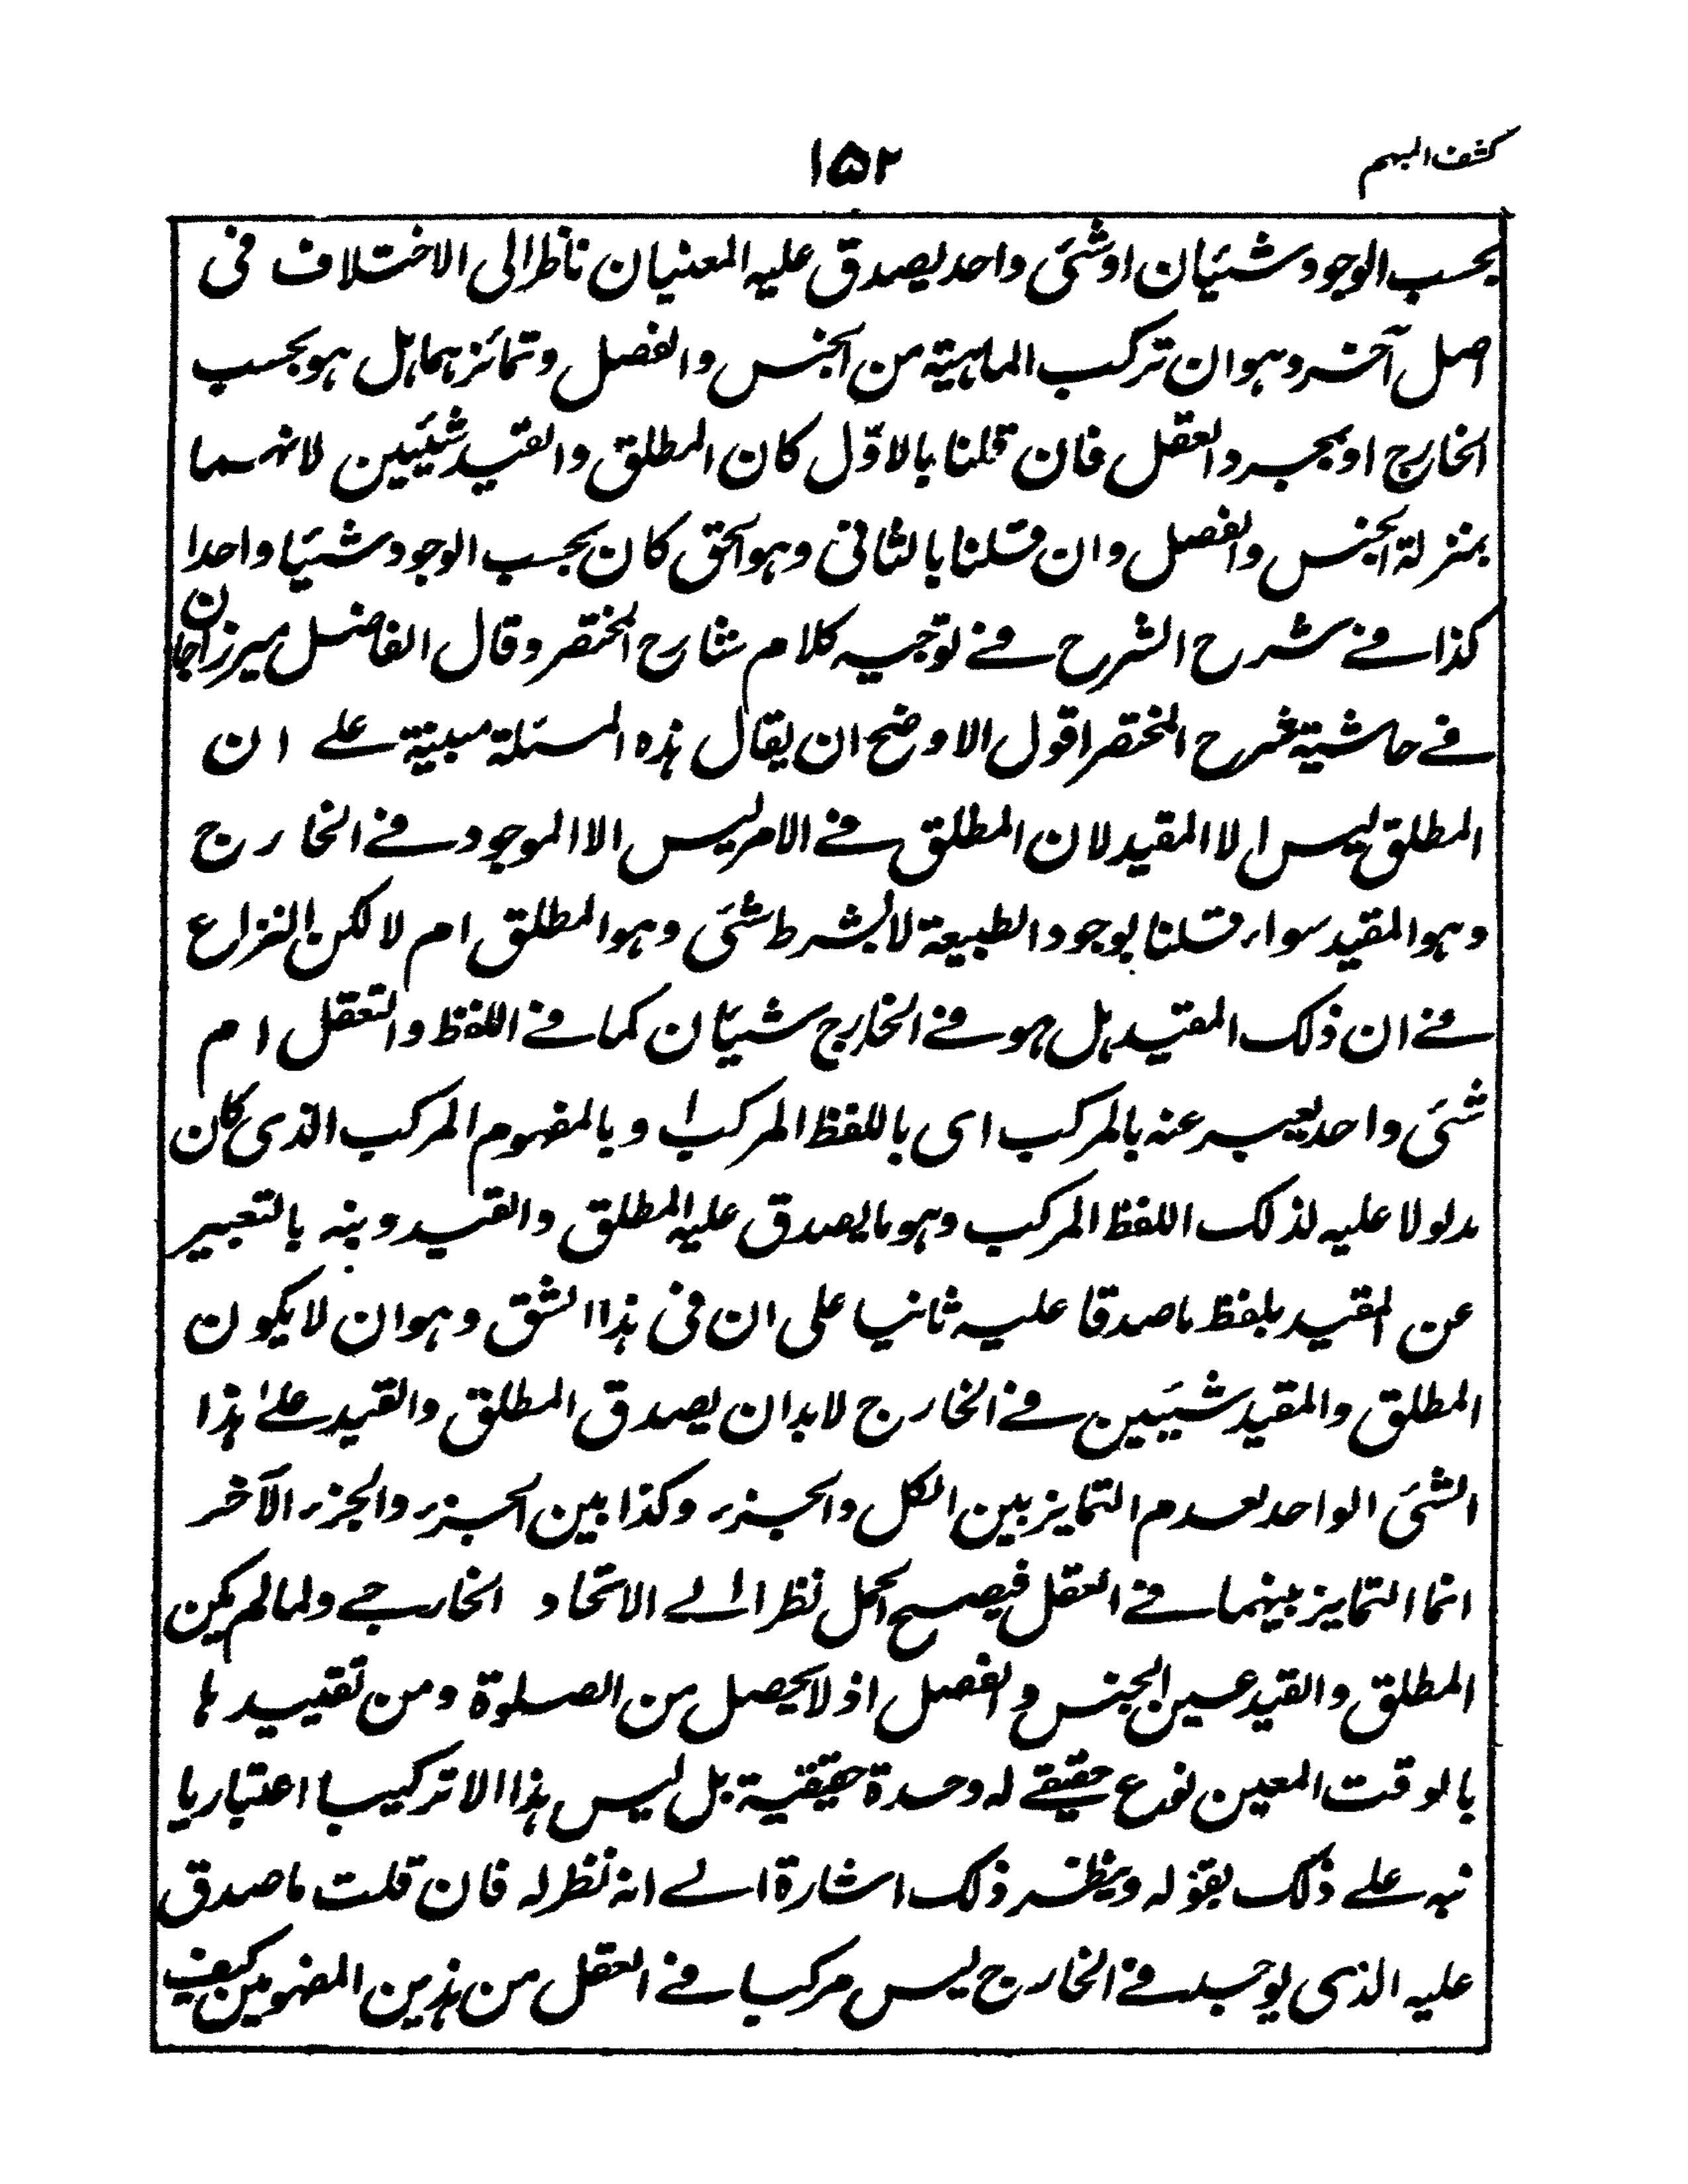 كشف المبهم
۱۵۲
بحسب الوجود شيئان او شئ واحد يصدق عليه المعنيان ناظرا الى الاختلاف فى
اصل آخر وهو ان تركب الماهية من الجنس والفصل وتمائزهما هل هو بحسب
الخارج او بمجرد العقل فان قلنا بالاوّل كان المطلق والقيد شيئين لانهما
بمنزلة الجنس والفصل وان قلنا بالثانى وهو الحق كان بحسب الوجود شيئا واحدا
كذا فے شرح الشرح فے توجيه كلام شارح المختصر وقال الفاضل ميرزا جان
فے حاشية شرح المختصر اقول الاوضح ان يقال هذه المسئلة مبنية علے ان
المطلق ليس الا المقيد لان المطلق فے الامر ليس الا الموجود فے الخارج
وهو المقيد سواء قلنا بوجود الطبيعة لا بشرط شئ وهو المطلق ام لا لكن النزاع
فے ان ذلك المقيد هل هو فے الخارج شيئان كما فے اللفظ والتعقل ام
شئ واحد يعبر عنه بالمركب اى باللفظ المركب او بالمفهوم المركب الذى كان
مدلولا عليه لذلك اللفظ المركب وهو ما يصدق عليه المطلق والقيد ونبه بالتعبير
عن المقيد بلفظ ما صدقا عليه ثانيا على ان فى هذا الشق وهو ان لا يكون
المطلق والمقيد شيئين فے الخارج لا بد ان يصدق المطلق والقيد علے هذا
الشئ الواحد لعدم التمايز بين الكل والجزء وكذا بين الجزء والجزء الآخر
انما التمايز بينهما فے العقل فيصح الحمل نظرا الے الاتحاد الخارجے ولما لم يكن
المطلق والقيد عين الجنس والفصل اذ لا يحصل من الصلوة ومن تقييدها
بالوقت المعين نوع حقيقے له وحدة حقيقية بل ليس هذا الا تركيبا اعتباريا
نبه علے ذلك بقوله وينظر ذلك اشارة الے انه نظر له فان قلت ما صدق
عليه الذى يوجد فے الخارج ليس مركبا فے العقل من هذين المفهومين كيف